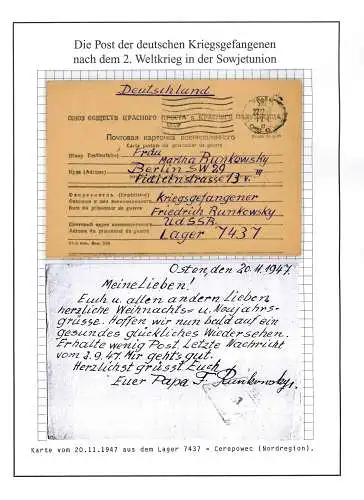 Die Post der deutschen Kriegsgefangenen
nach dem 2. Weltkrieg in der Sowjetunion
Deutschland
СОЮЗ ОБЩЕСТВ КРАСНОГО КРЕСТА и КРАСНОГО
Почтовая карточка военнопленного
Carte postale du prisonnier de guerre
Кому (Destinataire) Frau
Martha Runkowsky
Куда (Adresse) Berlin SW 29
Kriegsgefangener
Nom du prisonnier de guerre
Friedrich Runkowsky
UdSSR.
Adresse du prisonnier de guerre
Lager 7437
Osten, den 20.11.1947.
Meine Lieben!
Euch u. allen andern Lieben
herzliche Weihnachts= u. Neujahrs-
grüsse. Hoffen wir nun bald auf ein
gesundes glückliches Wiedersehen.
Erhalte wenig Post. Letzte Nachricht
vom 3.9.47. Mir geht's gut.
Herzlichst grüsst Euch
Euer Papa F. Runkowsky.
Karte vom 20.11.1947 aus dem Lager 7437 = Cerepowec (Nordregion).